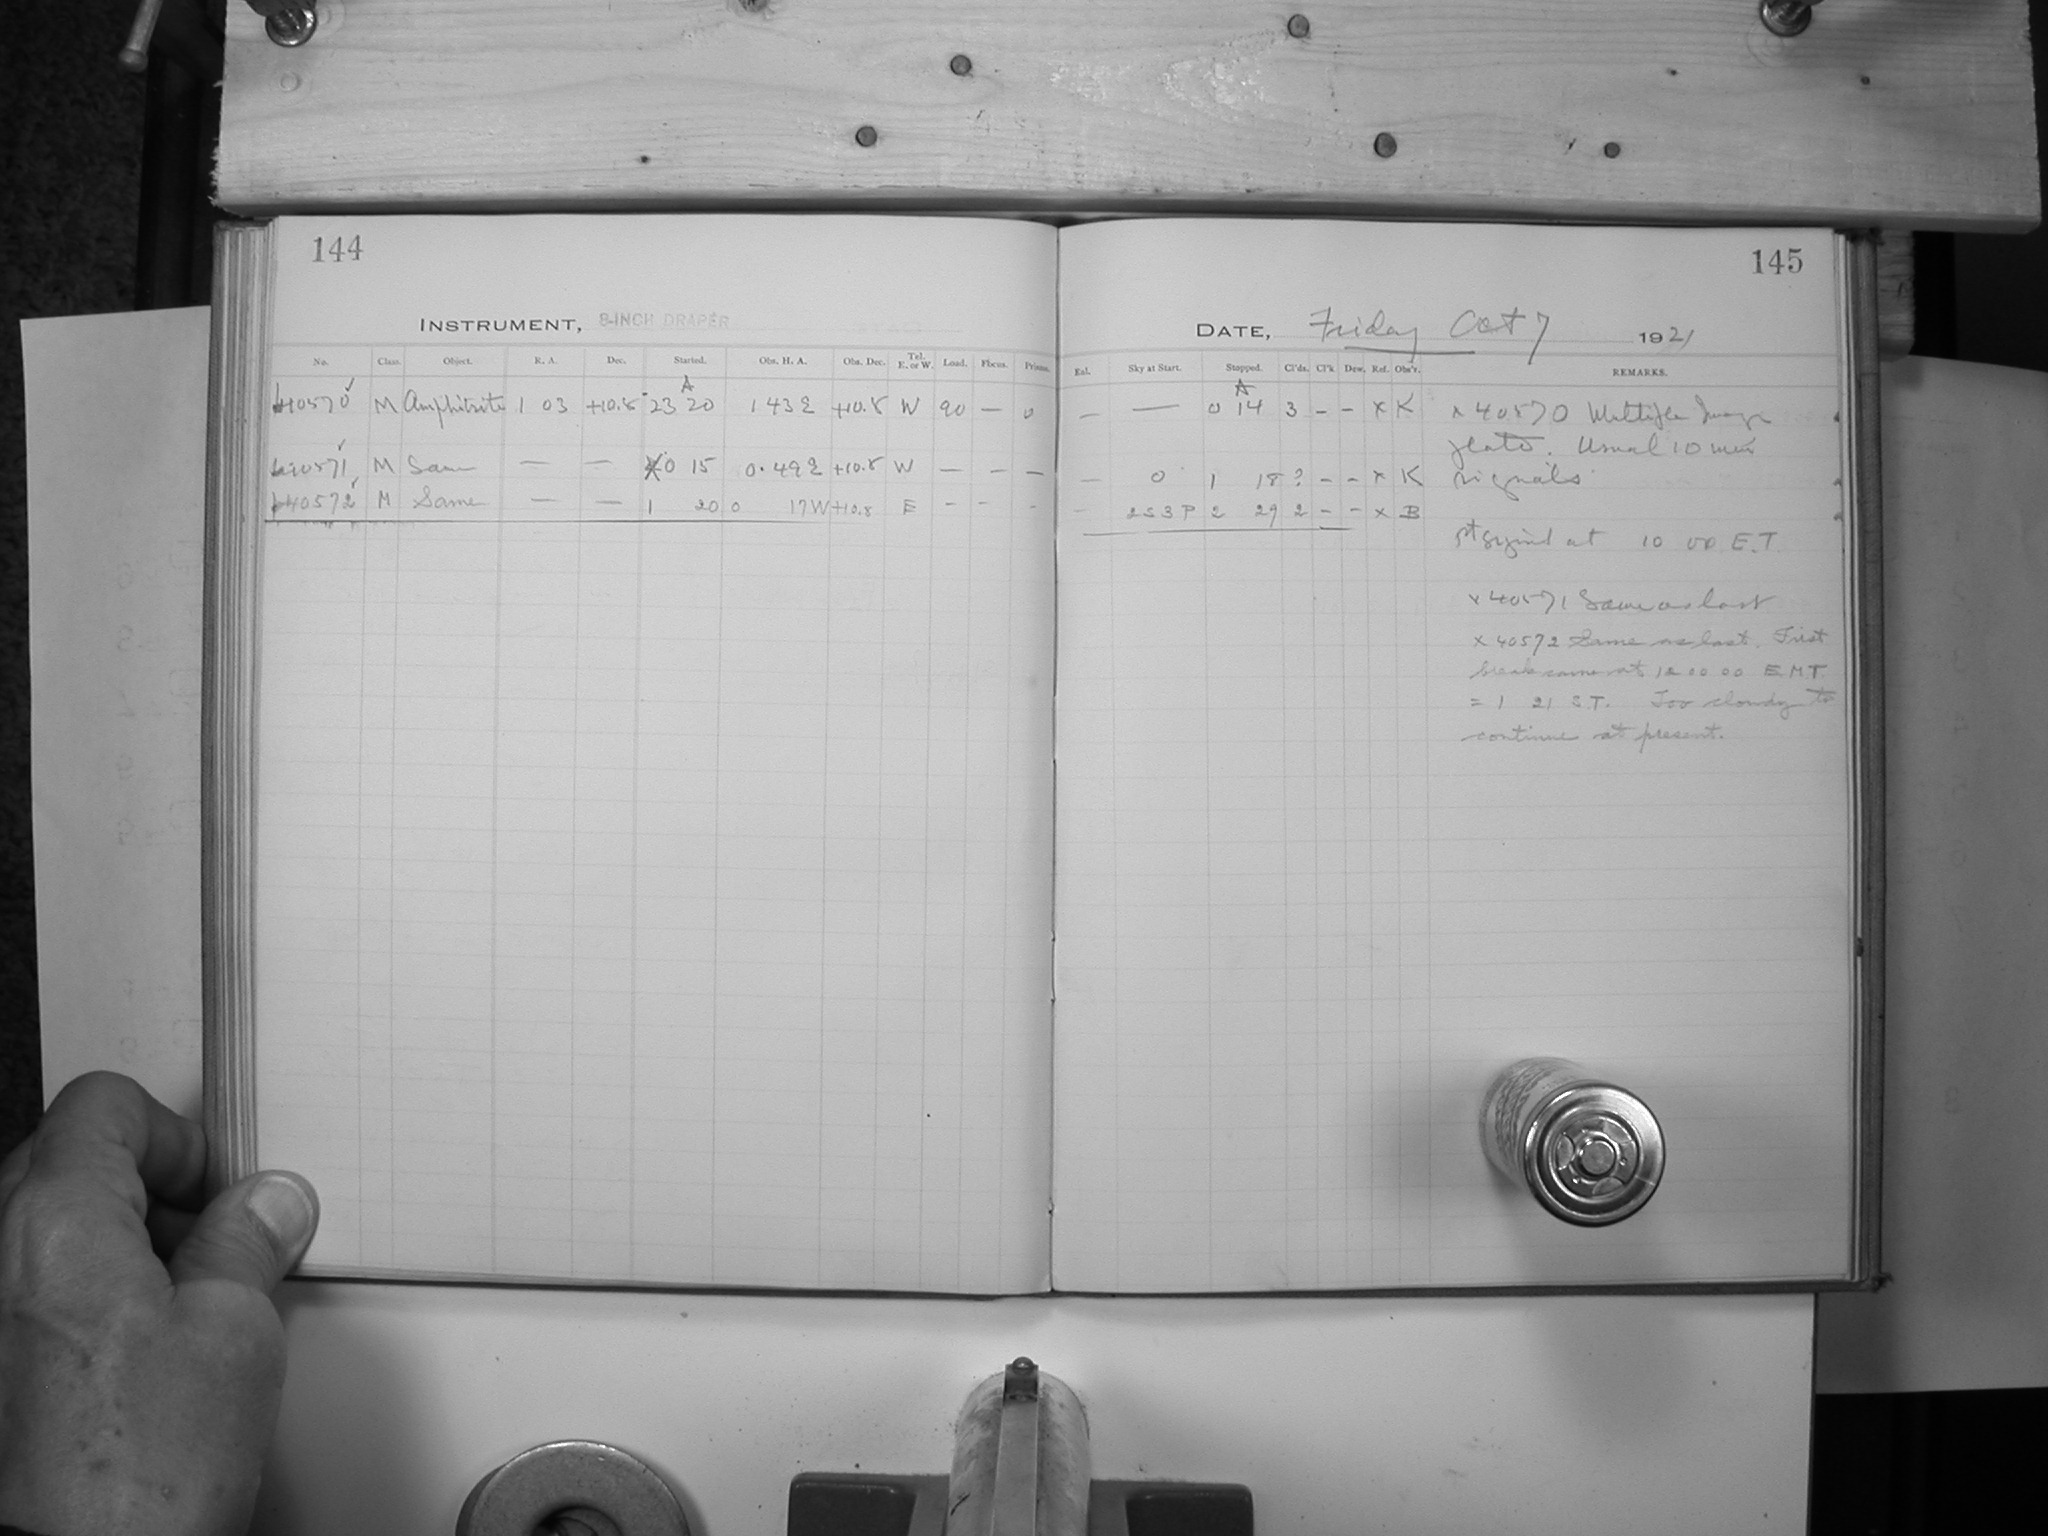 144
145
INSTRUMENT, 8-INCH DRAPER
DATE, Friday Oct 7 1921
No. Class. Object. R. A. Dec. Started. Obs. H. A. Obs. Dec. Tel. E. or W. Load. Focus. Prisms. Sky at Start. Stopped. Cl'ds. Cl'k Dew. Ref. Obs'r. REMARKS.
A A
b40570 M Amphitrite 1 03 +10.8 23 20 1 43 E +10.8 W 90 — 0 — — 0 14 3 - - x K x 40570 Multiple Image
plate. Usual 10 min
b40571 M Same — — 0 15 0.49 E +10.8 W — — — — 0 1 18 ? - - x K signals
b40572 M Same — — 1 20 0 17 W +10.8 E - - - - 253 P 2 29 2 - - x B
1st signal at 10 00 E.T.
x 40571 Same as last
x 40572 Same as last. First
break came at 12 00 00 E.M.T.
= 1 21 S.T. Too cloudy to
continue at present.